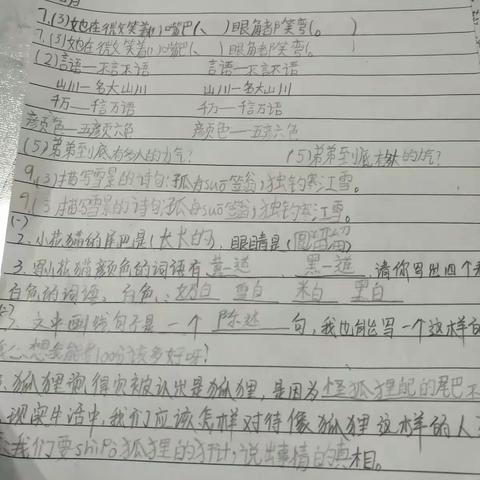 7.(3)她在微笑着(,)嘴巴(、 )眼角都笑弯(。 )
7.(3)她在微笑着(,)嘴巴(、 )眼角都笑弯(。
(2)言语—不言不语 言语—不言不语
山川—名大山川 山川—名大山川
千万—千言万语 千万—千言万语
颜色—五颜六色 颜色—五颜六色
(5)弟弟到底有多大的力气? (5)弟弟到底 的力气?
9.(3)描写雪景的诗句:孤舟suō笠翁,独钓寒江雪。
9(3)描写雪景的诗句:孤舟suō笠翁,独钓寒江雪。
(一)
2、小花猫的尾巴是(长长的),眼睛是(圆溜溜)
3.写小花猫颜色的词语有黄一道、黑一道,请你写出四个表
白色的词语。白色:奶白 雪白 米白 黑白
7、文中画线句不是一个陈述句,我也能写一个这样的
怎么想我能考100分该多好呀?
、狐狸觉得没被认出是狐狸,是因为怪狐狸的尾巴不
现实生活中,我们应该怎样对待像狐狸这样的人?
我们要shiPo狐狸的狞计,说出事情的真相。